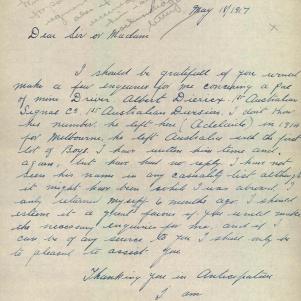 May 18/1917
Dear Sir or Madam
I should be gratefull if you would
make a few enquiries for me concerning a Pal
of mine Driver Albert 1st Australian
Signal Co. 1st Australian Division. I don't know
his number. he left here (Adelaide) in 1914
for Melbourne, he left Australia with the first
lot of Boys. I have written him time and
again, but have had no reply I have not
seen his name in any casualty list although
it might have been while I was abroad. I
only returned myself 6 months ago. I should
esteem it a great favour if you would make
the necessary enquiries for me, and if I
can be of any service to you I shall only be
to pleased to assist you.
Thanking you in Anticipation
I am